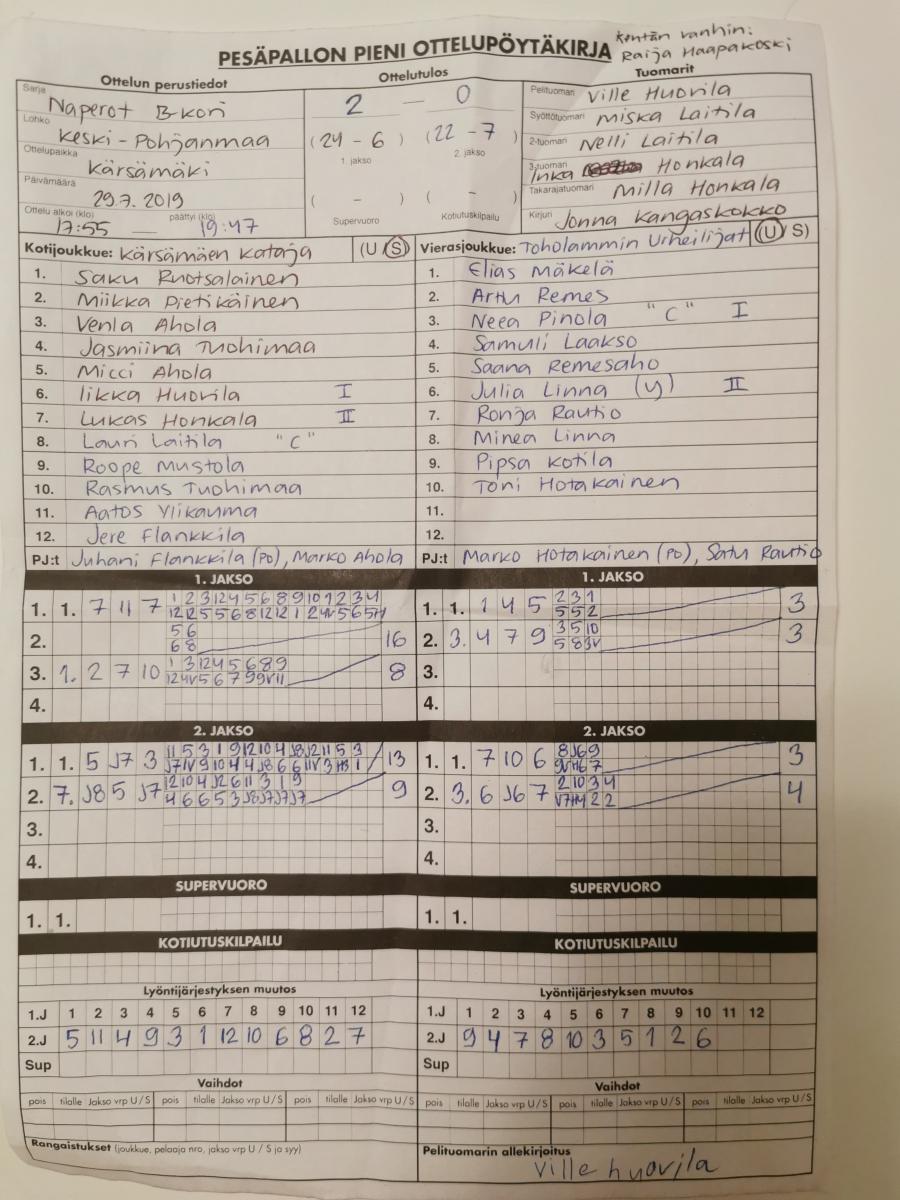 Kentän vanhin:
PESÄPALLON PIENI OTTELUPÖYTÄKIRJA Raija Haapakoski
Ottelun perustiedot Ottelutulos Tuomarit
Sarja Naperot B-kori
Lohko Keski-Pohjanmaa
Ottelupaikka Kärsämäki
Päivämäärä 29.7.2019
Ottelu alkoi (klo) 17:55 — päättyi (klo) 19:47
2 — 0
(24 - 6) (22 - 7)
1. jakso 2. jakso
( - ) ( - )
Supervuoro Kotiutuskilpailu
Pelituomari Ville Huovila
Syöttötuomari Miska Laitila
2-tuomari Nelli Laitila
3-tuomari Inka Honkala
Takarajatuomari Milla Honkala
Kirjuri Jonna Kangaskokko
Kotijoukkue: Kärsämäen Kataja (U / S)
1. Saku Ruotsalainen
2. Miikka Pietikäinen
3. Venla Ahola
4. Jasmiina Tuohimaa
5. Micci Ahola
6. Iikka Huovila I
7. Lukas Honkala II
8. Lauri Laitila "C"
9. Roope Mustola
10. Rasmus Tuohimaa
11. Aatos Ylikauma
12. Jere Flankkila
PJ:t Juhani Flankkila (PO), Marko Ahola
Vierasjoukkue: Toholammin Urheilijat (U / S)
1. Elias Mäkelä
2. Artu Remes
3. Neea Pinola "C" I
4. Samuli Laakso
5. Saana Remesaho
6. Julia Linna (y) II
7. Ronja Rautio
8. Minea Linna
9. Pipsa Kotila
10. Toni Hotakainen
11.
12.
PJ:t Marko Hotakainen (PO), Satu Rautio
1. JAKSO
1. 1. 7 11 7
2. 16
3. 1. 2 7 10 8
4.
1. JAKSO
1. 1. 1 4 5 2 3 1 3
5 5 2
2. 3. 4 7 9 3 5 10 3
3.
4.
2. JAKSO
1. 1. 5 J7 3 13
2. 7. J8 5 J7 9
3.
4.
2. JAKSO
1. 1. 7 10 6 8 J6 9 3
2. 3. 6 J6 7 2 10 3 4 4
3.
4.
SUPERVUORO
1. 1.
SUPERVUORO
1. 1.
KOTIUTUSKILPAILU
KOTIUTUSKILPAILU
Lyöntijärjestyksen muutos
1.J 1 2 3 4 5 6 7 8 9 10 11 12
2.J 5 11 4 9 3 1 12 10 6 8 2 7
Sup
Lyöntijärjestyksen muutos
1.J 1 2 3 4 5 6 7 8 9 10 11 12
2.J 9 4 7 8 10 3 5 1 2 6
Sup
Vaihdot
pois tilalle Jakso vrp U / S pois tilalle Jakso vrp U / S pois tilalle Jakso vrp U / S
Vaihdot
pois tilalle Jakso vrp U / S pois tilalle Jakso vrp U / S pois tilalle Jakso vrp U / S
Rangaistukset (joukkue, pelaaja nro, jakso vrp U / S ja syy)
Pelituomarin allekirjoitus
Ville huovila